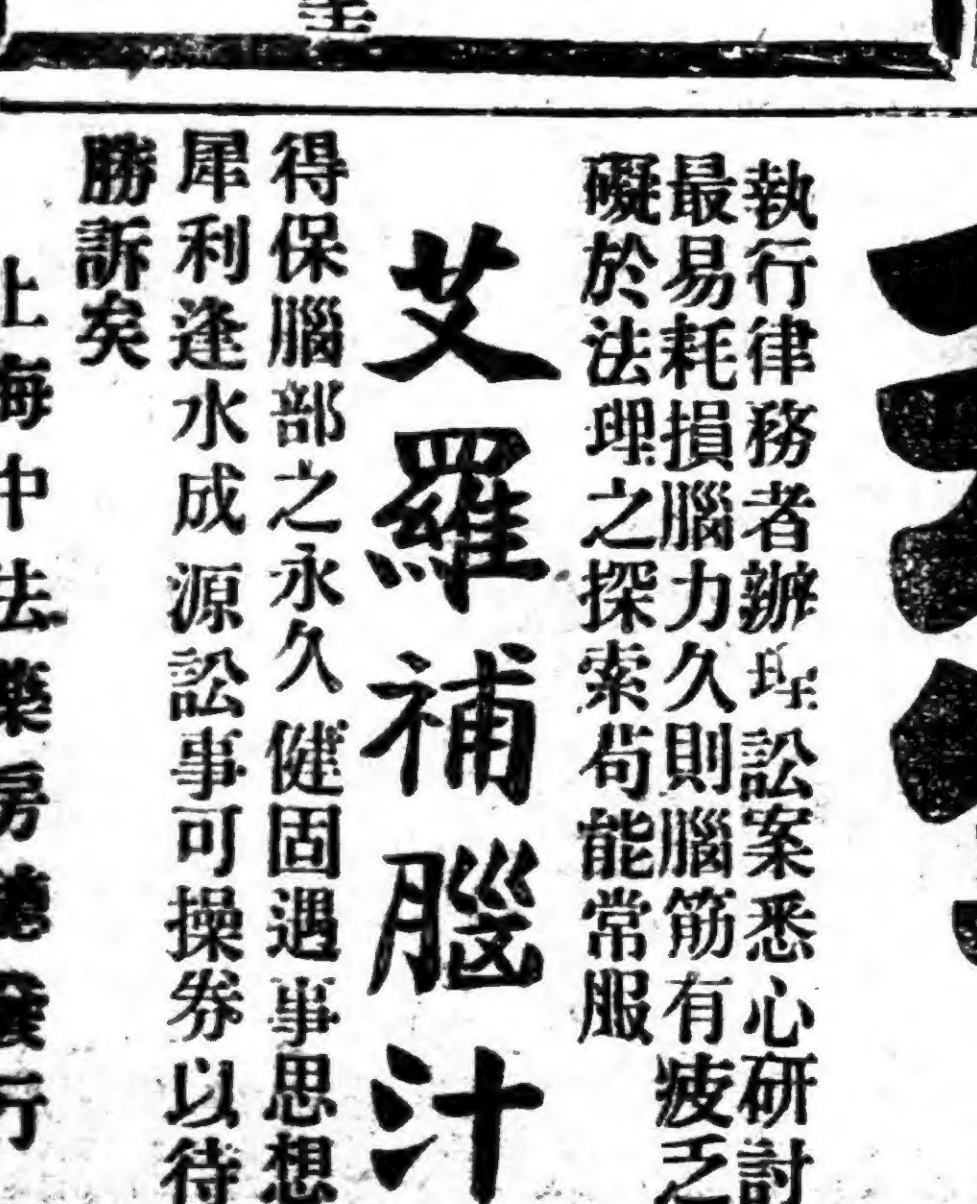 執行律務者辦理訟案悉心研討
最易耗損腦力久則腦筋有疲乏
礙於法理之探索苟能常服
艾羅補腦汁
得保腦部之永久健固遇事思想
犀利逢水成源訟事可操券以待
勝訴矣
上海中法藥房總發行